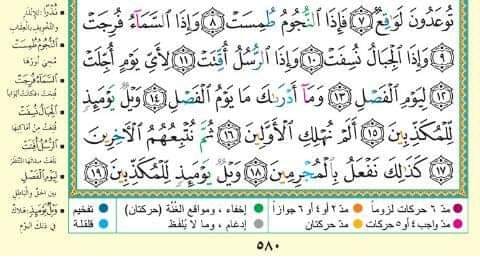 تُوعَدُونَ لَوَٰقِعٌ ٧ فَإِذَا ٱلنُّجُومُ طُمِسَتْ ٨ وَإِذَا ٱلسَّمَآءُ فُرِجَتْ
٩ وَإِذَا ٱلْجِبَالُ نُسِفَتْ ١٠ وَإِذَا ٱلرُّسُلُ أُقِّتَتْ ١١ لِأَيِّ يَوْمٍ أُجِّلَتْ
١٢ لِيَوْمِ ٱلْفَصْلِ ١٣ وَمَآ أَدْرَىٰكَ مَا يَوْمُ ٱلْفَصْلِ ١٤ وَيْلٌ يَوْمَئِذٍ
لِّلْمُكَذِّبِينَ ١٥ أَلَمْ نُهْلِكِ ٱلْأَوَّلِينَ ١٦ ثُمَّ نُتْبِعُهُمُ ٱلْءَاخِرِينَ
١٧ كَذَٰلِكَ نَفْعَلُ بِٱلْمُجْرِمِينَ ١٨ وَيْلٌ يَوْمَئِذٍ لِّلْمُكَذِّبِينَ ١٩
والتخويف بالعقاب
النُّجُومُ طُمِسَتْ
السَّمَاءُ فُرِجَتْ
الْجِبَالُ نُسِفَتْ
الرُّسُلُ أُقِّتَتْ
لِيَوْمِ الْفَصْلِ
بين الحق والباطل
وَيْلٌ يَوْمَئِذٍ: هلاك
في ذلك اليوم
مدّ ٦ حركات لزوماً مدّ ٢ أو ٤ أو ٦ جوازاً إخفاء، ومواقع الغُنَّة (حركتان) تفخيم
مدّ واجب ٤ أو ٥ حركات مدّ حركتان إدغام، وما لا يُلفَظ قلقلة
٥٨٠